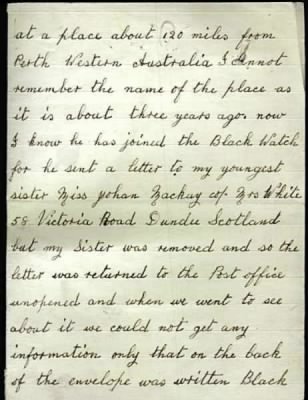 at a place about 120 miles from
Perth Western Australia I cannot
remember the name of the place as
it is about three years ago now
I know he has joined the Black Watch
for he sent a letter to my youngest
sister Miss Johan Mackay c/o Mrs White
58 Victoria Road Dundee Scotland
but my Sister was removed and so the
letter was returned to the Post office
unopened and when we went to see
about it we could not get any
information only that on the back
of the envelope was written Black